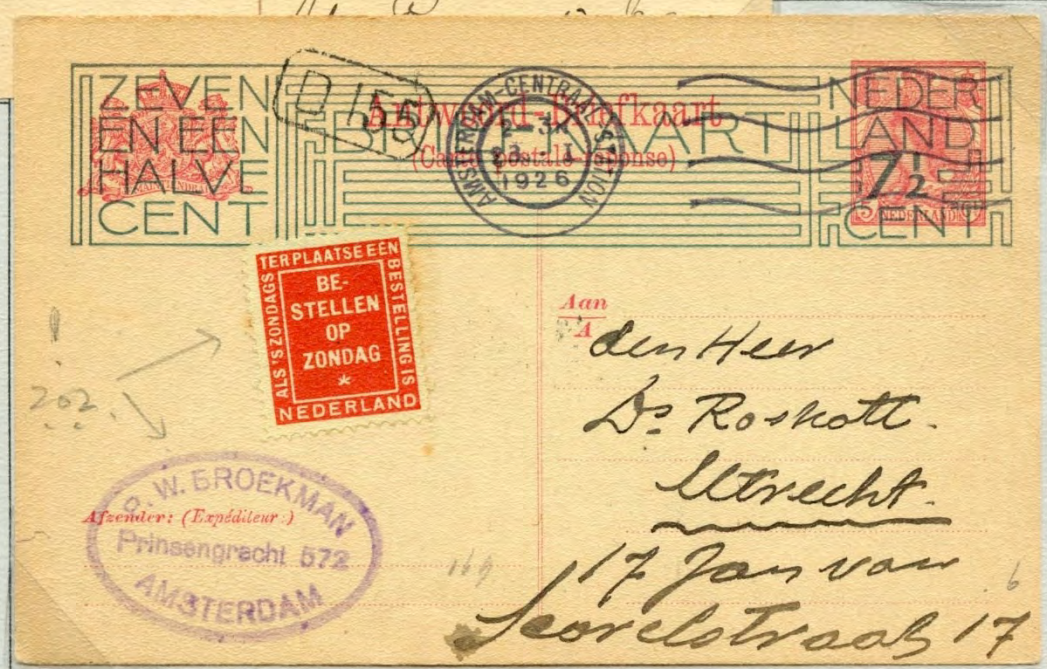 ZEVEN
EN EEN
HALVE
CENT
D 155
Antwoord-Briefkaart
BRIEFKAART
(Carte postale-réponse)
AMSTERDAM-CENTRAAL STATION
1926
NEDER
LAND
7½
CENT
NEDERLAND
TER PLAATSE EEN
BESTELLING IS
ALS 'S ZONDAGS
BE-
STELLEN
OP
ZONDAG
*
NEDERLAND
202
Aan
A
den Heer
Ds Roskott.
Utrecht.
17 Jan van
Scorelstraat 17
W. BROEKMAN
Afzender: (Expéditeur:)
Prinsengracht 572
AMSTERDAM
169
6